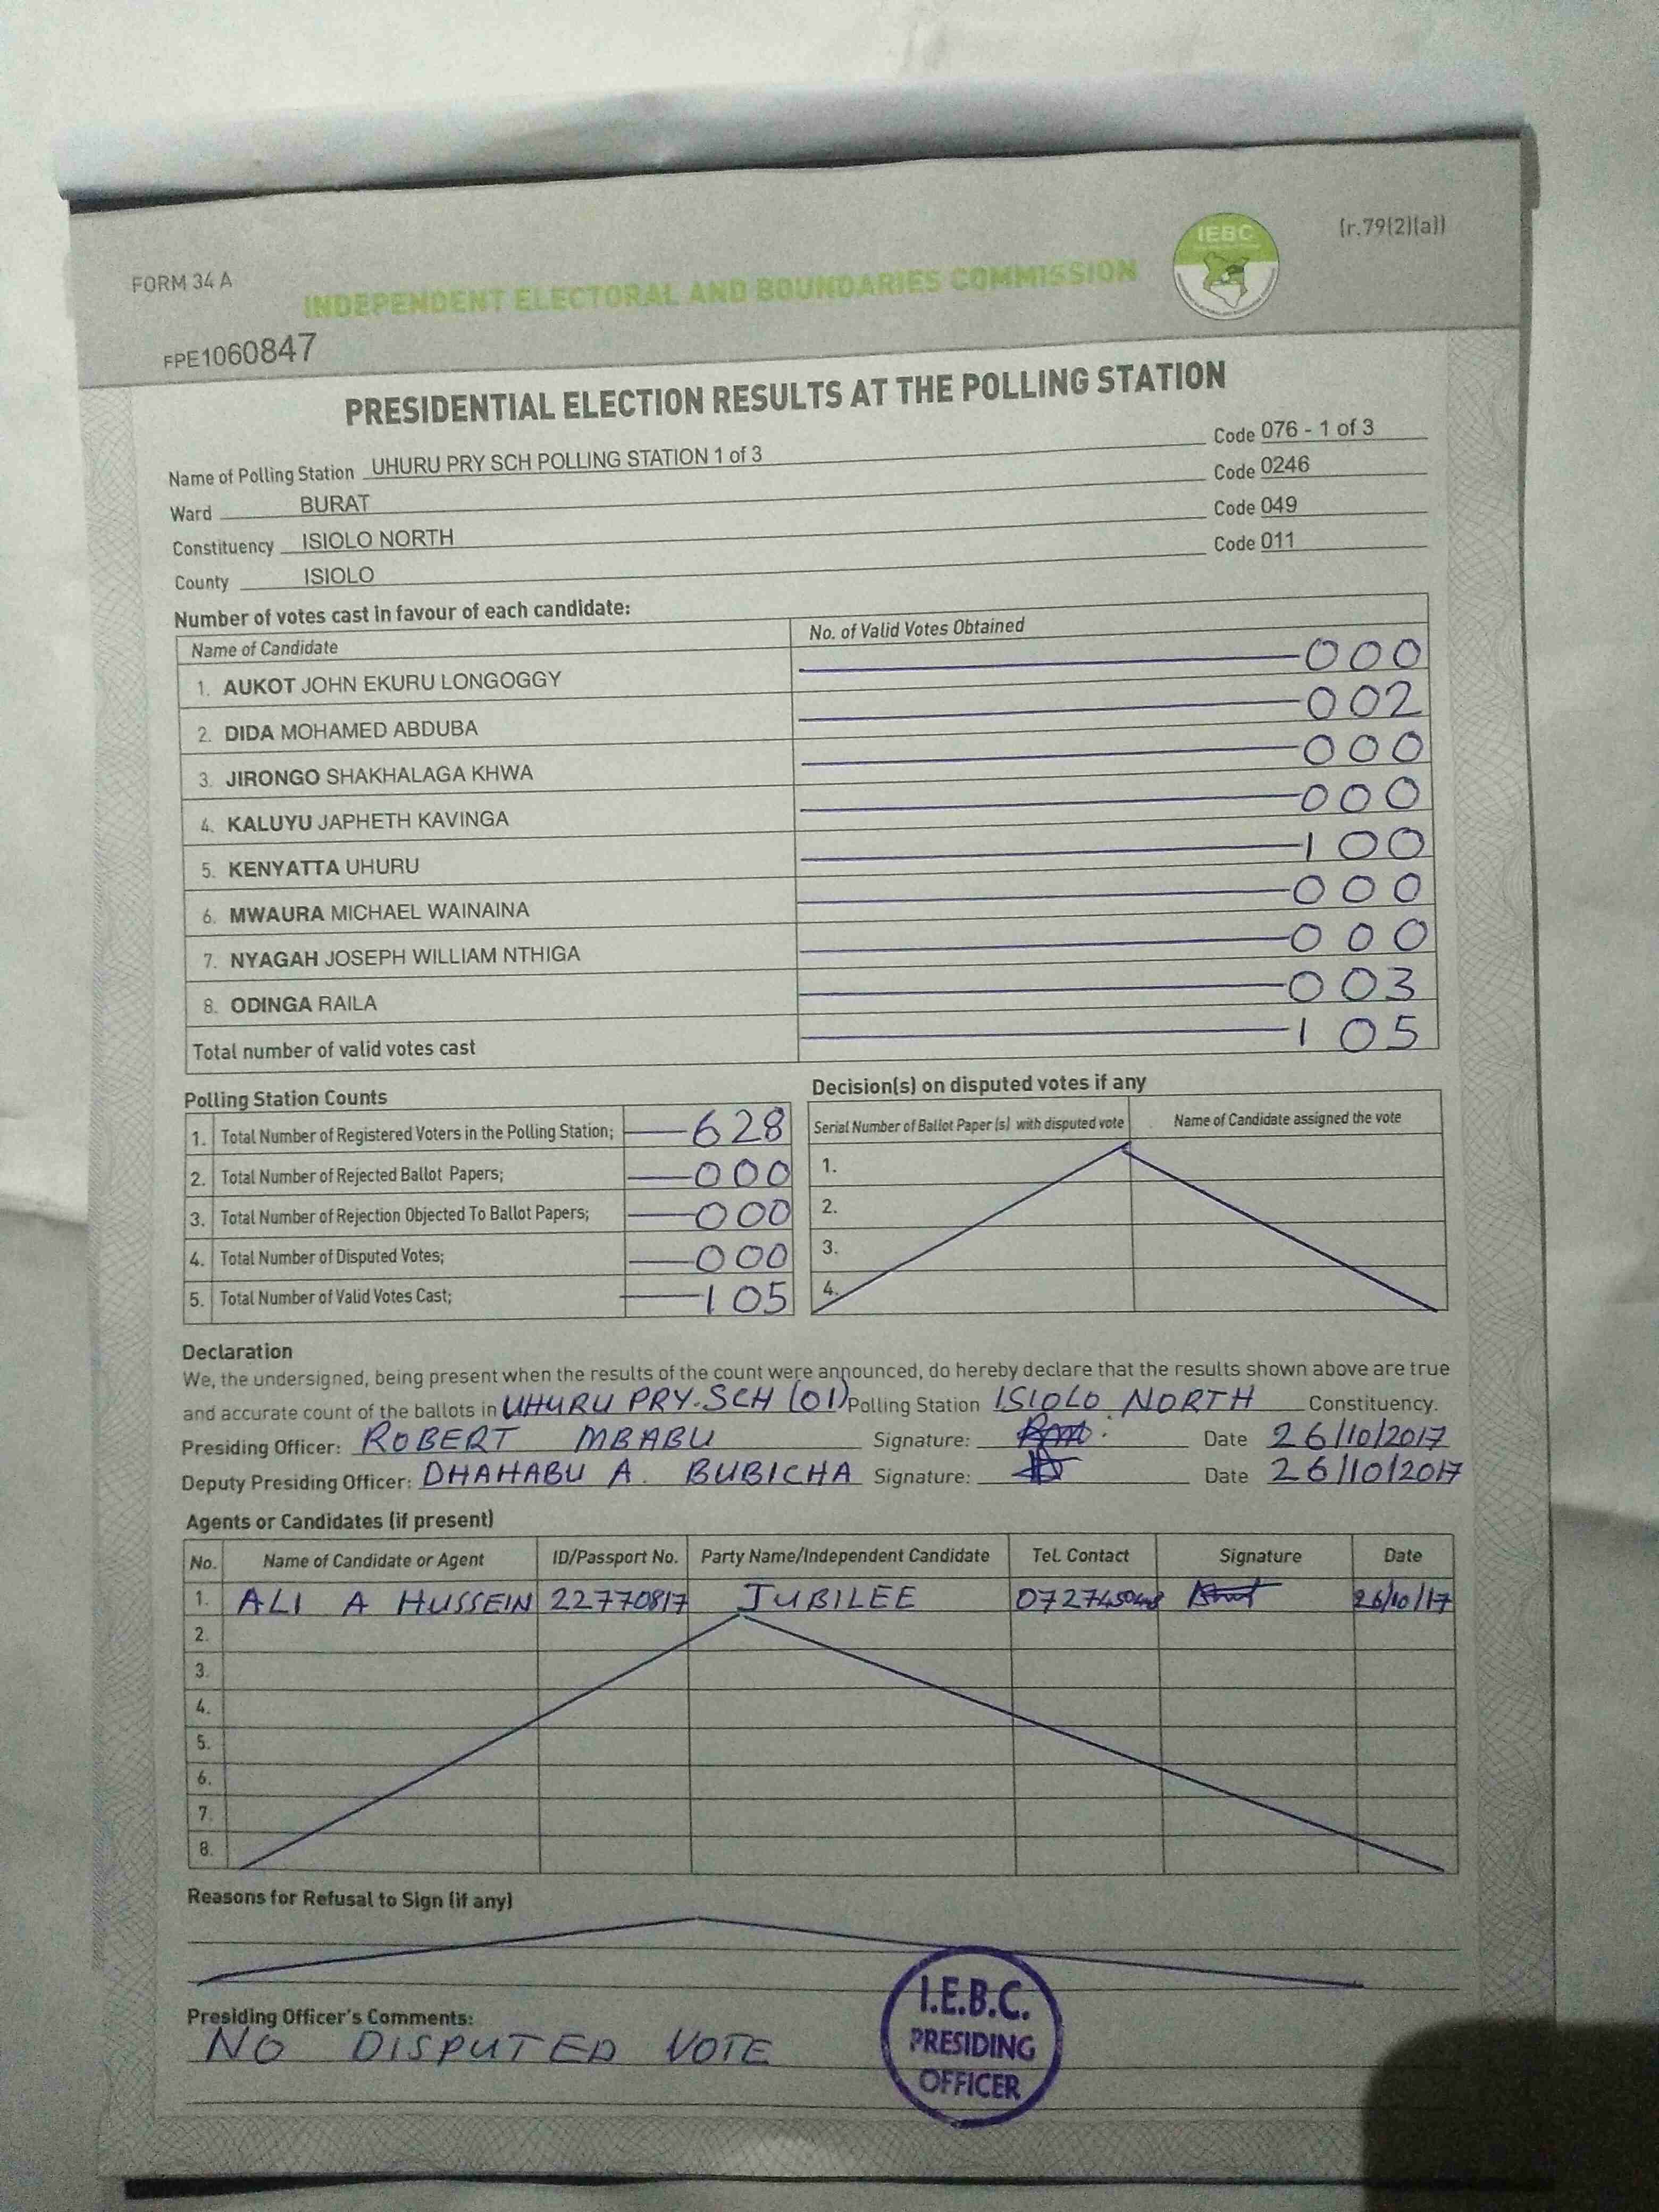 (r.79(2)(a))
IEBC
FORM 34 A
INDEPENDENT ELECTORAL AND BOUNDARIES COMMISSION
FPE1060847
PRESIDENTIAL ELECTION RESULTS AT THE POLLING STATION
Name of Polling Station UHURU PRY SCH POLLING STATION 1 of 3 Code 076 - 1 of 3
Ward BURAT Code 0246
Constituency ISIOLO NORTH Code 049
County ISIOLO Code 011
Number of votes cast in favour of each candidate:
Name of Candidate No. of Valid Votes Obtained
1. AUKOT JOHN EKURU LONGOGGY 000
2. DIDA MOHAMED ABDUBA 002
3. JIRONGO SHAKHALAGA KHWA 000
4. KALUYU JAPHETH KAVINGA 000
5. KENYATTA UHURU 100
6. MWAURA MICHAEL WAINAINA 000
7. NYAGAH JOSEPH WILLIAM NTHIGA 000
8. ODINGA RAILA 003
Total number of valid votes cast 105
Polling Station Counts
1. Total Number of Registered Voters in the Polling Station; 628
2. Total Number of Rejected Ballot Papers; 000
3. Total Number of Rejection Objected To Ballot Papers; 000
4. Total Number of Disputed Votes; 000
5. Total Number of Valid Votes Cast; 105
Decision(s) on disputed votes if any
Serial Number of Ballot Paper (s) with disputed vote Name of Candidate assigned the vote
1.
2.
3.
4.
Declaration
We, the undersigned, being present when the results of the count were announced, do hereby declare that the results shown above are true
and accurate count of the ballots in UHURU PRY.SCH (01) Polling Station ISIOLO NORTH Constituency.
Presiding Officer: ROBERT MBABU Signature: Date 26/10/2017
Deputy Presiding Officer: DHAHABU A. BUBICHA Signature: Date 26/10/2017
Agents or Candidates (if present)
No. Name of Candidate or Agent ID/Passport No. Party Name/Independent Candidate Tel. Contact Signature Date
1. ALI A HUSSEIN 22770817 JUBILEE 26/10/17
2.
3.
4.
5.
6.
7.
8.
Reasons for Refusal to Sign (if any)
Presiding Officer's Comments:
NO DISPUTED VOTE
I.E.B.C.
PRESIDING
OFFICER